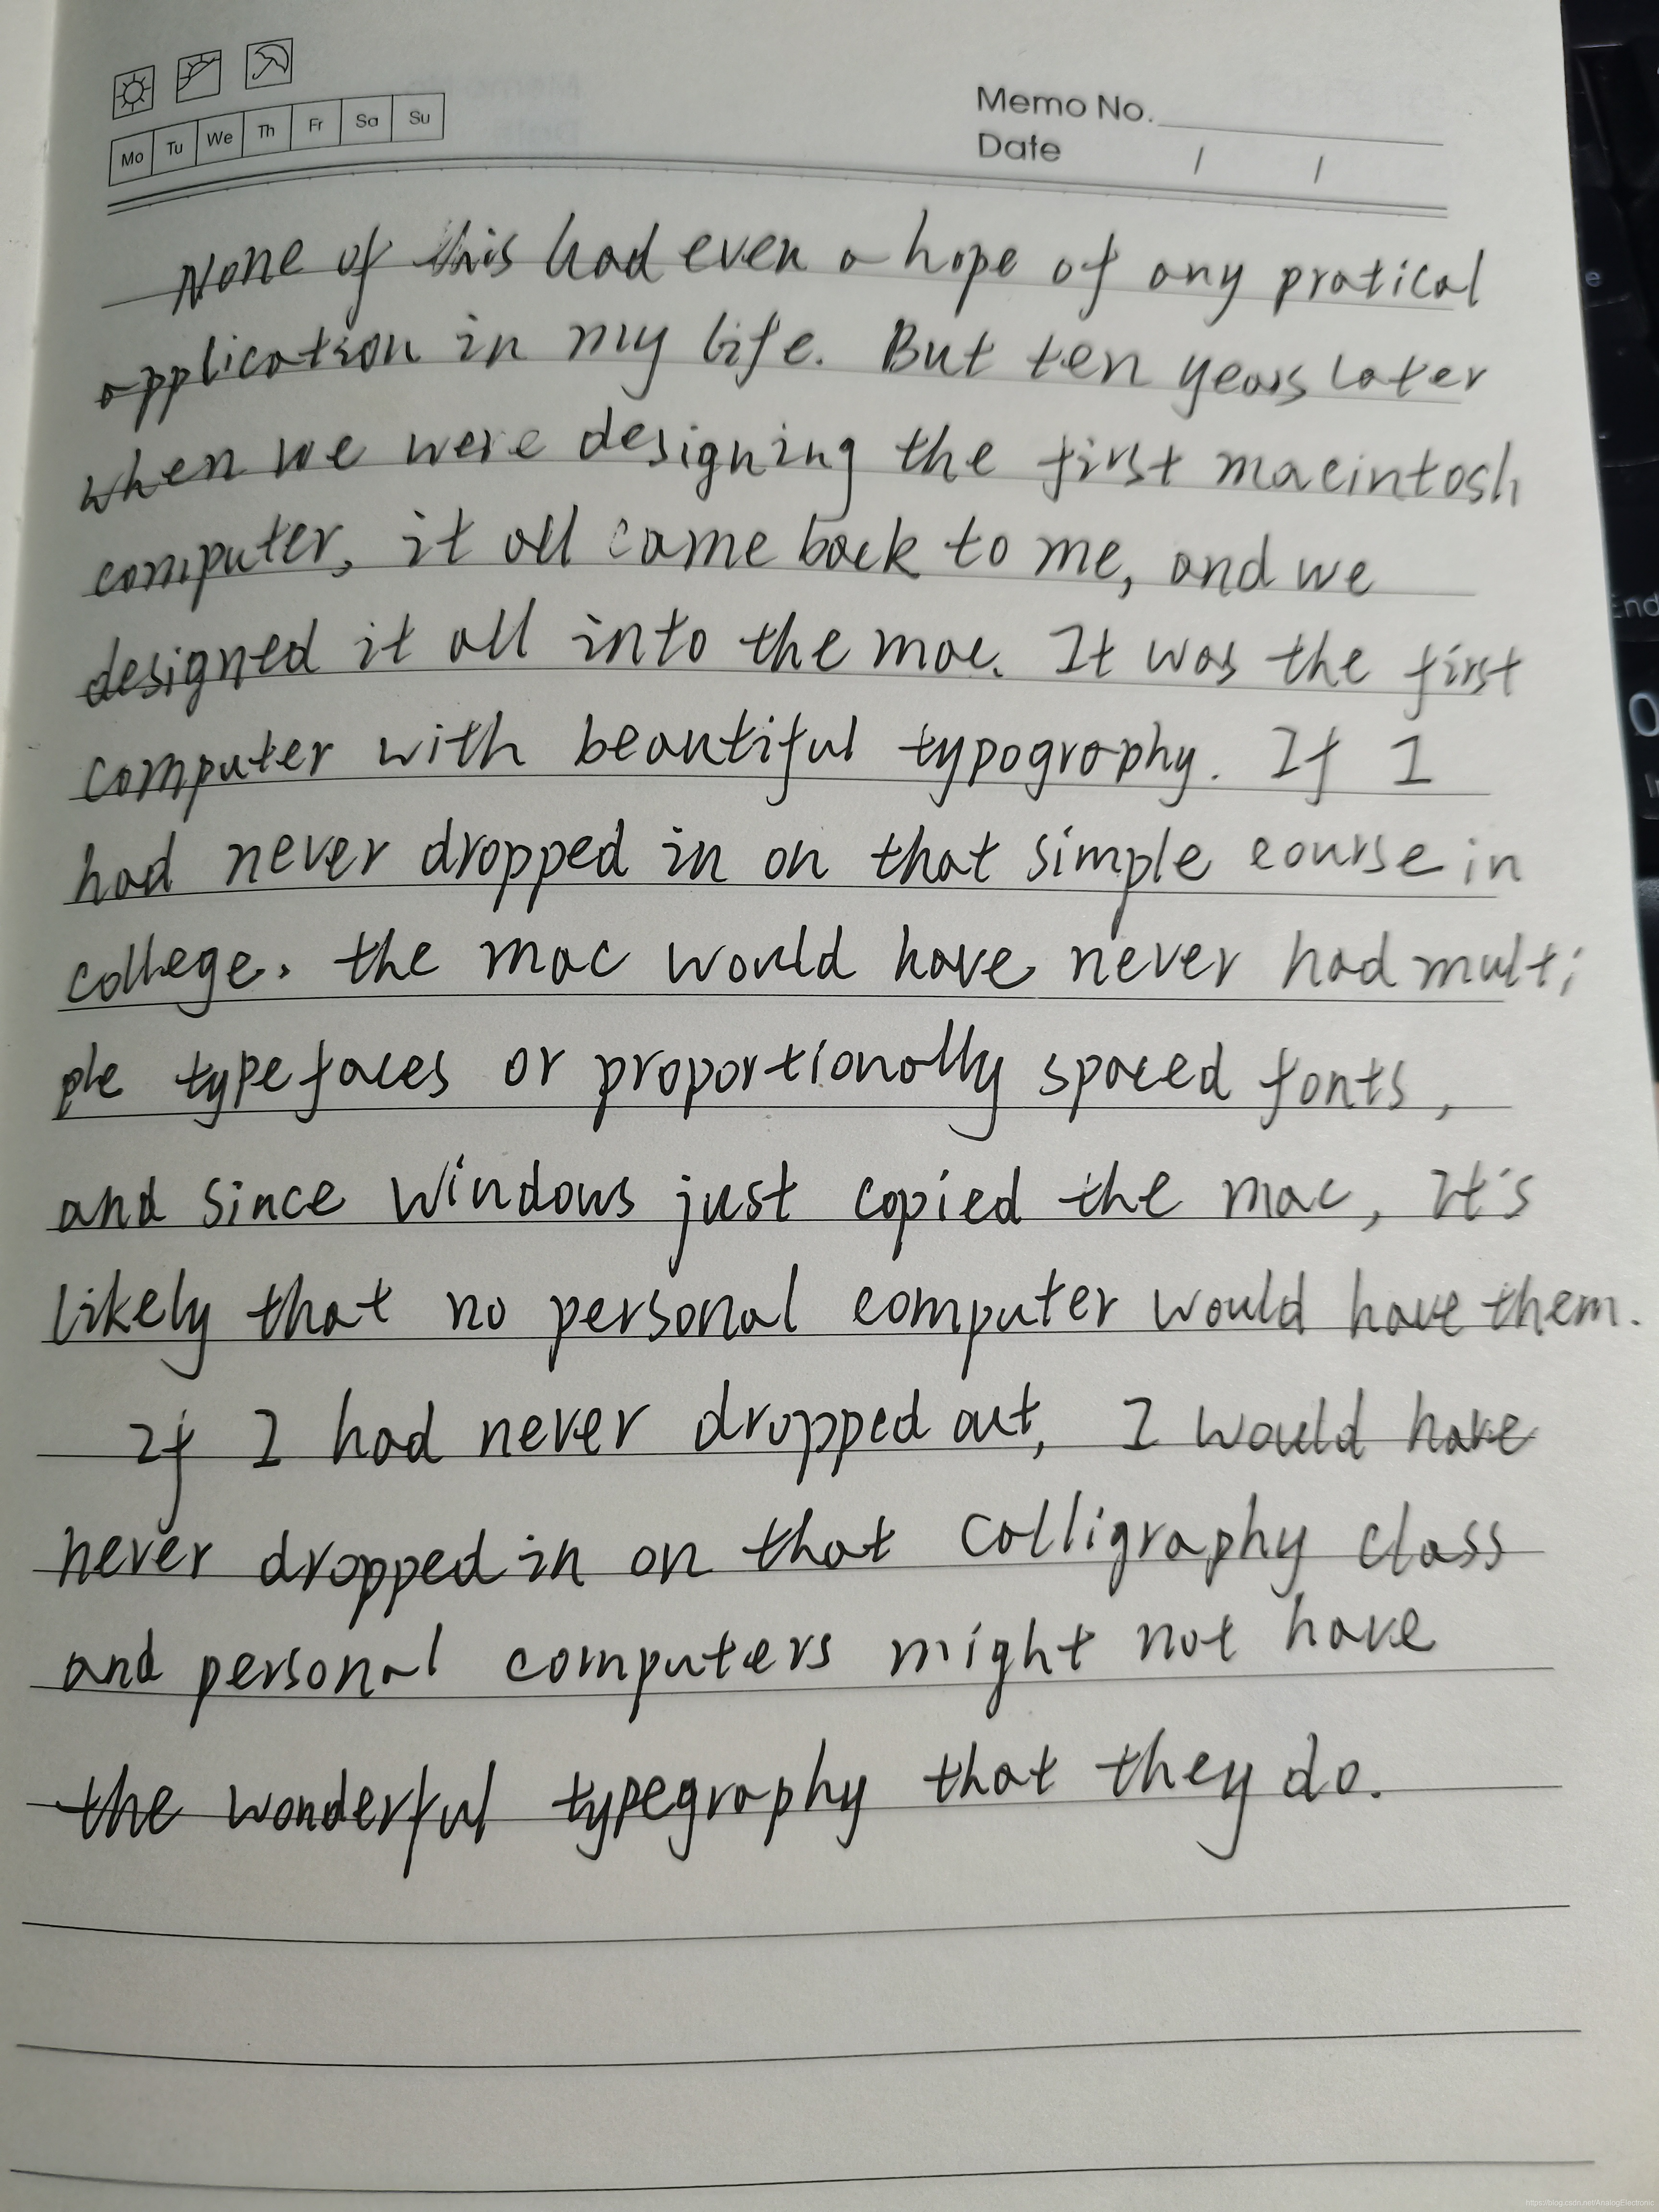 Memo No.
Mo Tu We Th Fr Sa Su
Date / /
None of this had even a hope of any pratical
application in my life. But ten years later
when we were designing the first macintosh
computer, it all came back to me, and we
designed it all into the mac. It was the first
computer with beautiful typography. If I
had never dropped in on that simple course in
college. the mac would have never had multi
ple typefaces or proportionally spaced fonts,
and since windows just copied the mac, It's
likely that no personal computer would have them.
If I had never dropped out, I would have
never dropped in on that calligraphy class
and personal computers might not have
the wonderful typegraphy that they do.
https://blog.csdn.net/AnalogElectronic